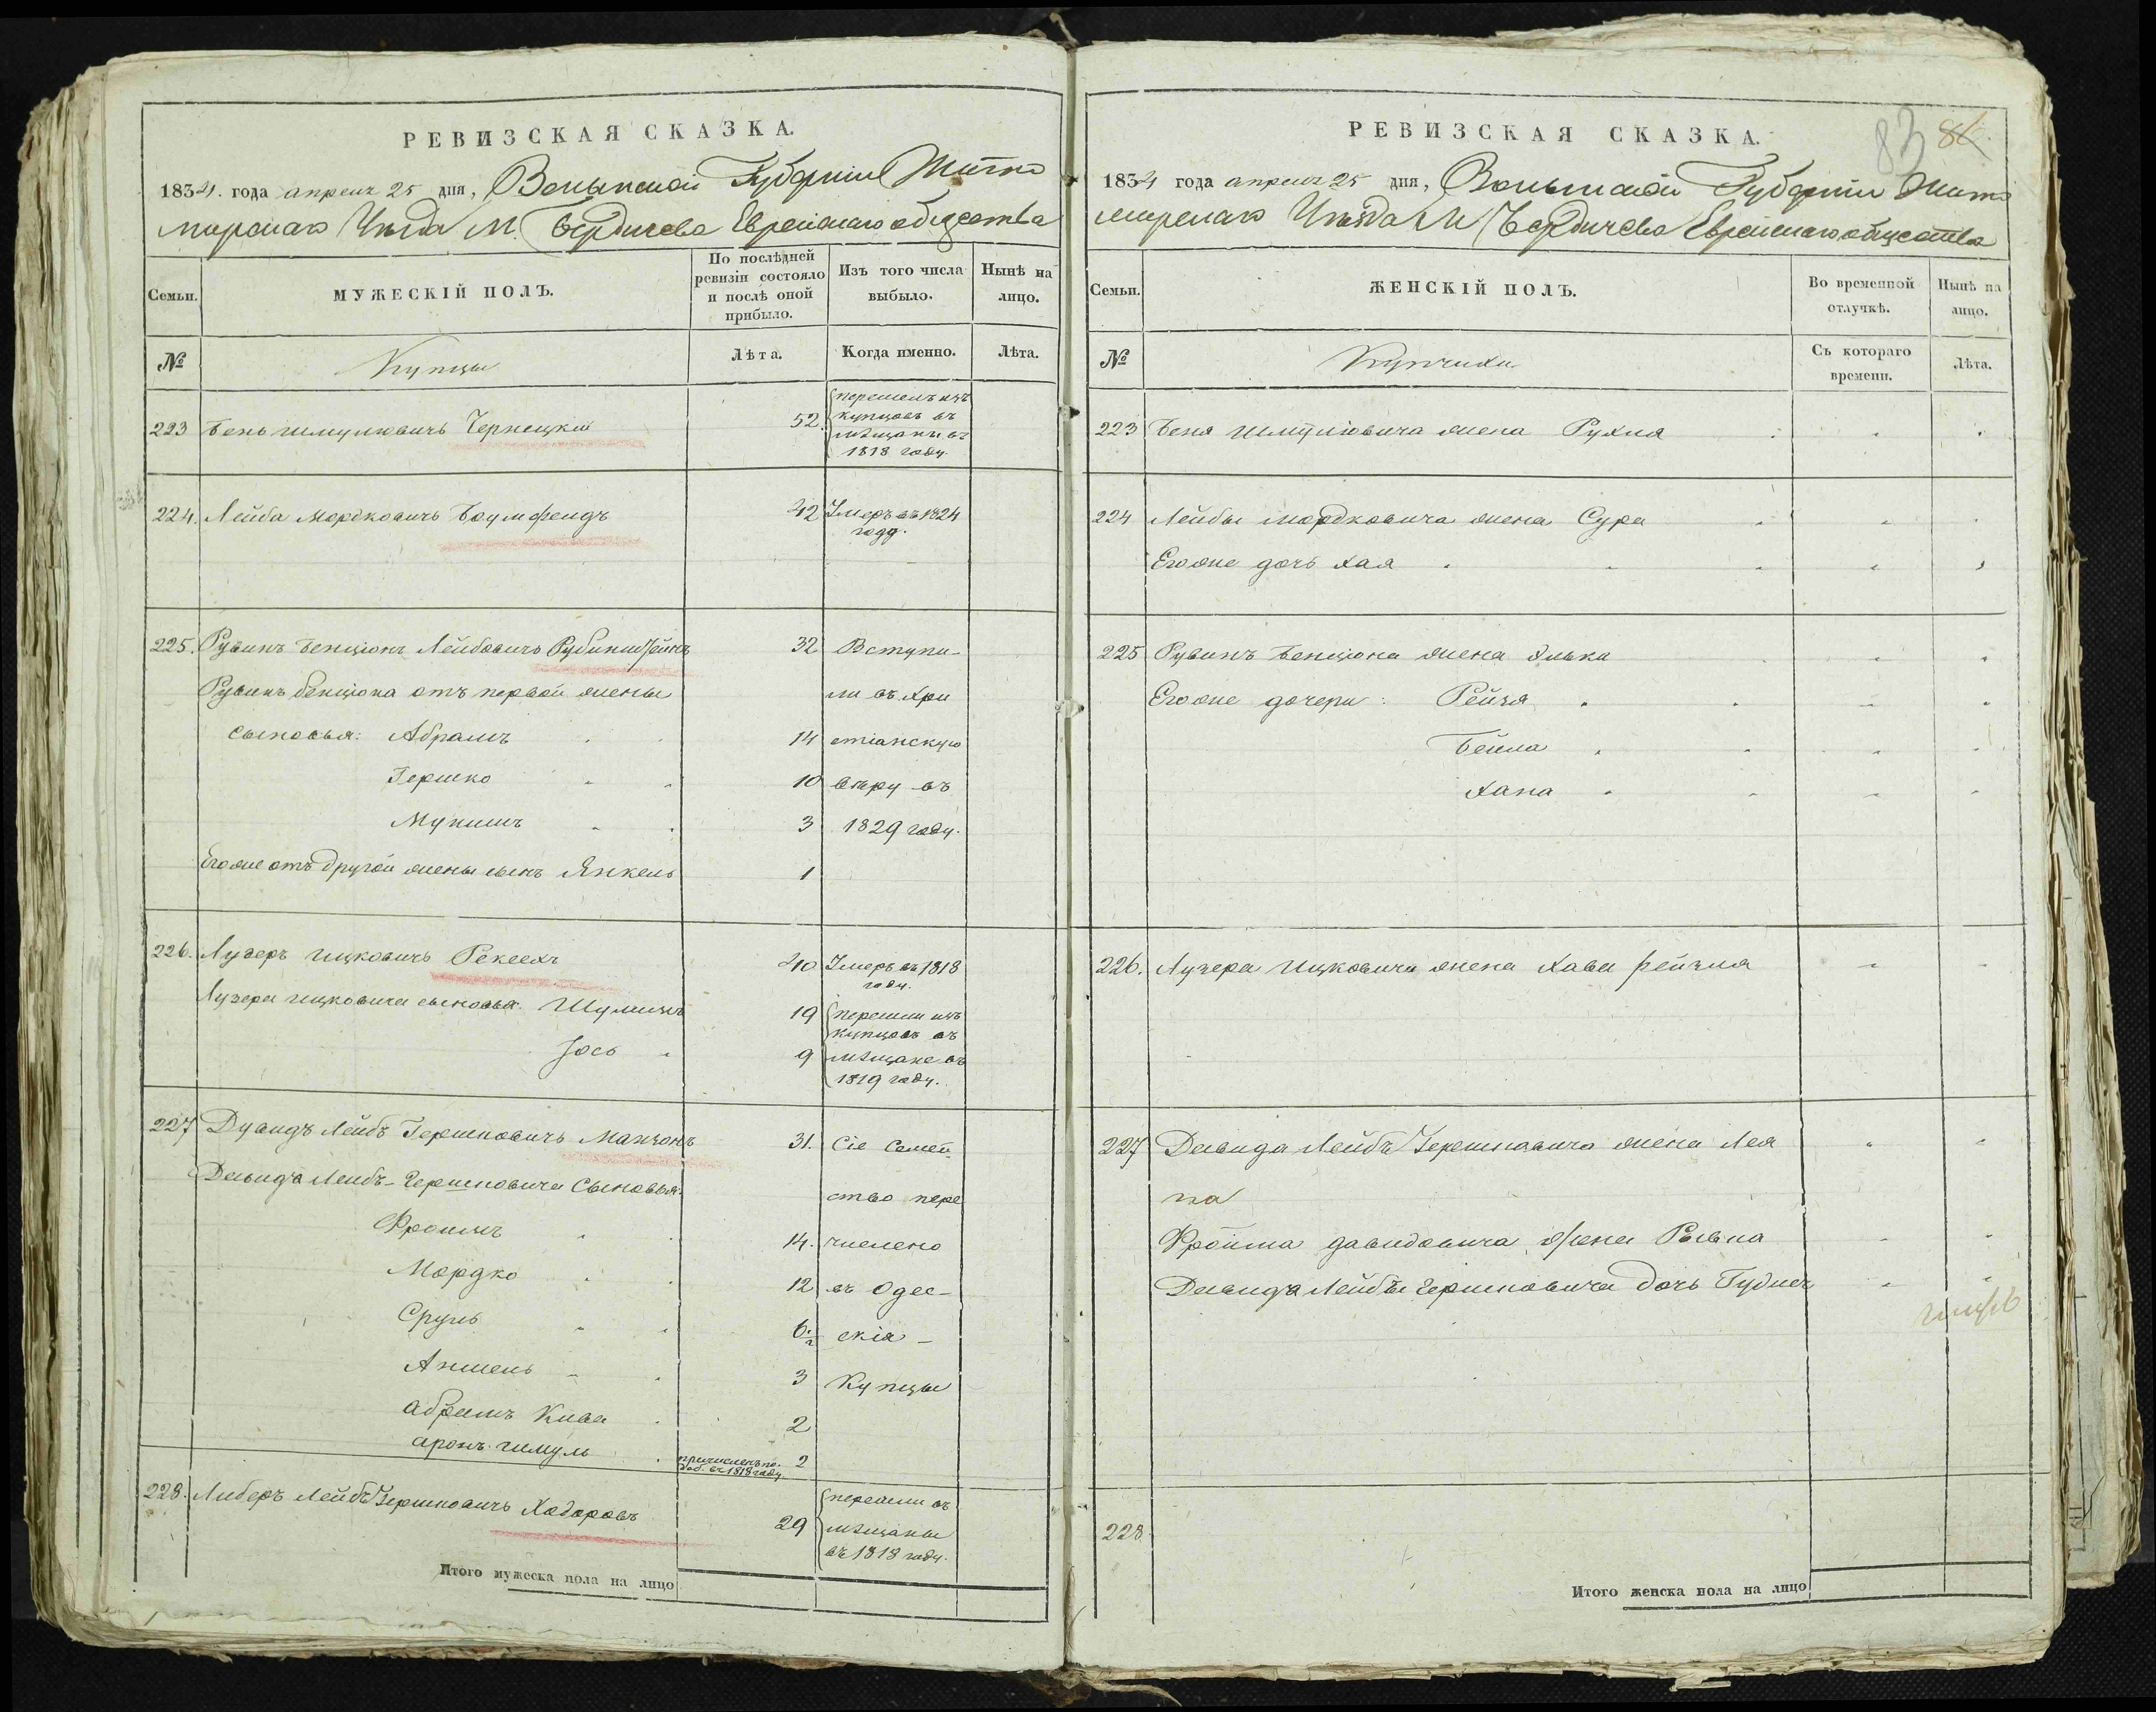 РЕВИЗСКАЯ СКАЗКА.
1834. года апреля 25 дня, Волынской Губерніи Жито
мирскаго Уѣзда М. Бердичева Еврейскаго общества
Семьи.
МУЖЕСКІЙ ПОЛЪ.
По послѣдней
ревизіи состояло
и послѣ оной
прибыло.
Изъ того числа
выбыло.
Нынѣ на
лицо.
№
Купцы
Лѣта.
Когда именно.
Лѣта.
223 Бень Шмулювичь Чернецкій 52
перешелъ изъ
купцовъ въ
мѣщаны въ
1818 году.
224. Лейба Мордковичь Боумфелдъ 42 Умеръ въ 1824
году.
225. Рувинъ Бенціонъ Лейбовичь Рубинштейнъ 32 Вступи-
Рувинъ Бенціона отъ первой жены ли въ Хри
сыновья: Абрамъ 14 стіанскую
Гершко 10 вѣру въ
3 1829 году.
Егоже отъ другой жены сынъ Янкель 1
226. Лузеръ Ицковичь 40 Умеръ въ 1818
году.
Лузера Ицковича сыновья: 19 перешли изъ
купцовъ въ
Іось 9 мѣщане въ
1819 году.
227 Дувидъ Лейбъ Гершковичь Манзонъ 31. Сіе семей
Давида Лейбъ-Гершковича Сыновья: ство пере
Фроимъ 14. числено
Мордко 12 въ Одес-
Сруль 6 ½ скія -
Аншель 3 Купцы
Абрамъ Кива 2
Аронъ Шмуль причисленъ по
доб. въ 1818 году 2
228. Либеръ Лейбъ Гершковичь Ходоровъ 29
перешли въ
мѣщаны
въ 1818 году.
Итого мужеска пола на лицо
83 86.
РЕВИЗСКАЯ СКАЗКА.
1834 года апреля 25 дня, Волынской Губерніи Жито
мирскаго Уѣзда М Бердичева Еврейскаго общества
Семьи.
ЖЕНСКІЙ ПОЛЪ.
Во временной
отлучкѣ.
Нынѣ на
лицо.
№
Купчихи
Съ котораго
времени.
Лѣта.
223 Беня Шмулювича жена Рухля
224 Лейбы Мордковича жена Сура
Егоже дочь Хая
225 Рувинъ Бенціона жена Элька
Егоже дочери: Рейзя
Бейла
Хана
226. Лузера Ицковича жена Хава Рейзля
227 Давида Лейбъ Гершковича жена Лея
на
Фройма Давидовича жена
Давида Лейбы Гершковича дочь
228.
Итого женска пола на лицо